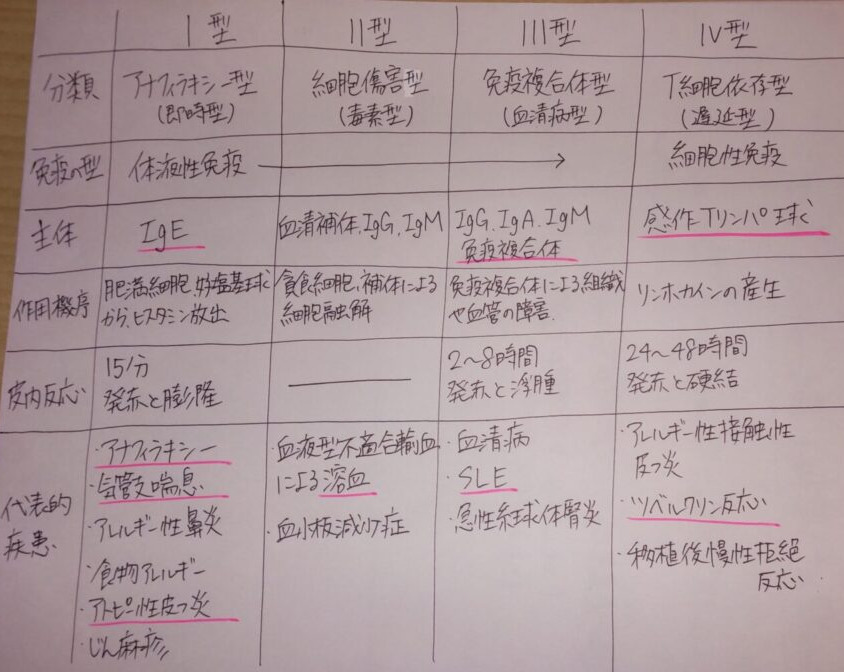 I型 II型 III型 IV型
分類 アナフィラキシー型 細胞傷害型 免疫複合体型 T細胞依存型
(即時型) (毒素型) (血清病型) (遅延型)
免疫の型 体液性免疫 → 細胞性免疫
主体 IgE 血清補体、IgG、IgM IgG、IgA、IgM 感作Tリンパ球
免疫複合体
作用機序 肥満細胞、好塩基球 貪食細胞、補体による 免疫複合体による組織 リンホカインの産生
から、ヒスタミン放出 細胞融解 や血管の障害.
皮内反応 15分 ― 2〜8時間 24〜48時間
発赤と膨隆 発赤と浮腫 発赤と硬結
代表的 ・アナフィラキシー ・血液型不適合輸血 ・血清病 ・アレルギー性接触性
疾患 ・気管支喘息 による溶血 ・SLE 皮フ炎
・アレルギー性鼻炎 ・血小板減少症 ・急性糸球体腎炎 ・ツベルクリン反応
・食物アレルギー ・移植後慢性拒絶
・アトピー性皮フ炎 反応
・じん麻疹